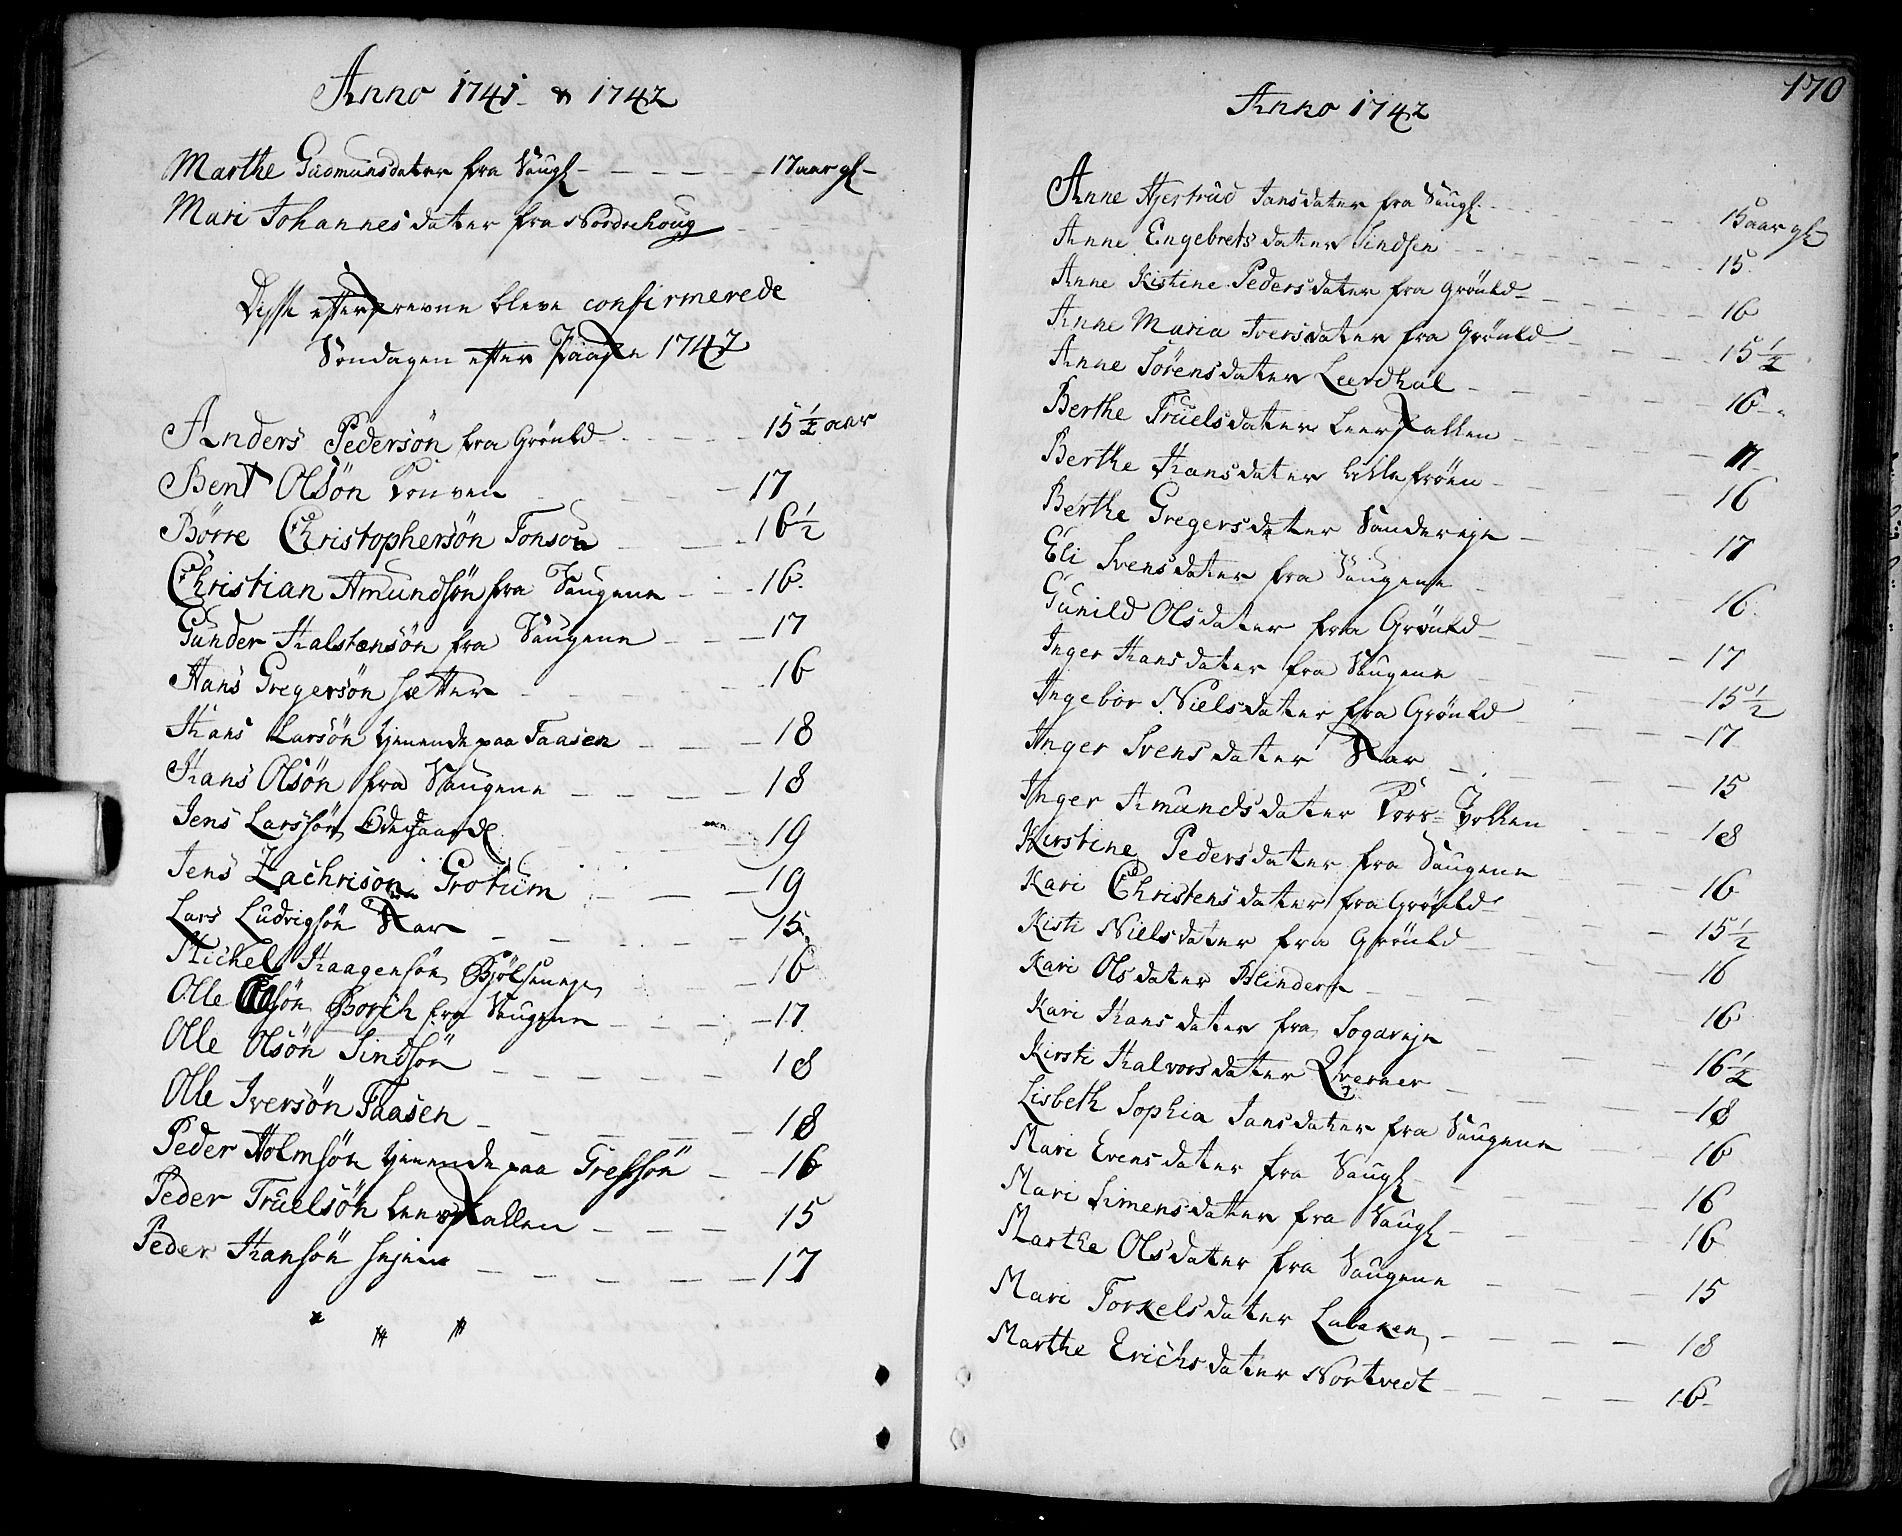 Anno 1741 & 1742
Marthe Gudmunsdater fra Saugh 17 aar gl
Mari Johannesdater fra Nordrehoug
Disse efterskrevne bleve confirmerede
Söndagen efter Paaske 1742
Anders Pedersön fra Grönld 15 1/2 aar
Bent Olsön 17
Börre Christophersön Tonsou 16 1/2
Christian Amundsön fra Saugene 16
Gunder Halstensön fra Saugene 17
Hans Gregersön Sætter 16
Hans Larsön tjenende paa Taasen 18
Hans Olsön fra Saugene 18
Jens Larssön Ödegaard 19
Jens Zachrison Grotüm 19
Lars Ludvigsön Skar 15
Michel Haagensön Bjölseneje 16
Olle Olsön Borch fra Saugene 17
Olle Olsön Sindsön 18
Olle Iversön Taasen 18
Peder Holmsön tjenende paa Grefsön 16
Peder Truelsön Leerskallen 15
Peder Hansön 17
170
Anno 1742
Anne Hjertrud Jansdater fra Saugh 15 aar gl
Anne Engebretsdater Sindsen 15
Anne Kistine Pedersdater fra Grönld 16
Anne Maria Iversdater fra Grönld 15 1/2
Anne Sörensdater Leerdhal 16
Berthe Truelsdater Leerskallen 17
Berthe Hansdater Lillefröen 16
Berthe Gregersdater Sandereje 17
Eli Svensdater fra Saugene 16
Gunild Olsdater fra Grönld 17
Inger Hansdater fra Saugene 15 1/2
Ingebor Nielsdater fra Grönld 17
Inger Svensdater Skar 15
Inger Amundsdater 18
Kirstine Pedersdater fra Saugene 16
Kari Christensdater fra Grönld 15 1/2
Kisti Nielsdater fra Grönld 16
Kari Olsdater Blindern 16
Kari Hansdater fra Sogareje 16 1/2
Kirsti Halvorsdater Qverner 18
Lisbeth Sophia Jansdater fra Saugene 16
Mari Evensdater fra Saugh 16
Mari Simensdater fra Saugh 16
Marthe Olsdater fra Saugene 15
Mari Torkelsdater Labaken 18
Marthe Erichsdater Nortvedt 16